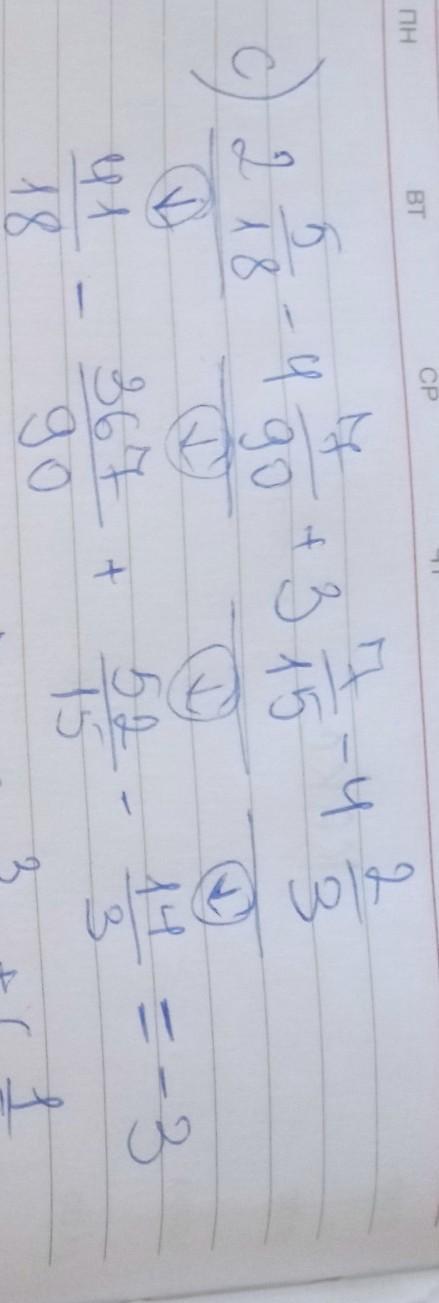 ПН ВТ СР
c) 2 5/18 - 4 7/90 + 3 7/15 - 4 2/3
↓ ↓ ↓ ↓
41/18 - 367/90 + 52/15 - 14/3 = -3